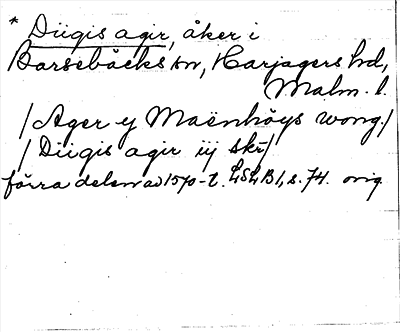 * Diigis agir, åker i
Barsebäcks sn, Harjagers hd,
Malm. l.
/Ager y Maënhöys wong/
/Diigis agir iij skr/
förra delen av 1570-t. LSLB 1, s. 74. orig.